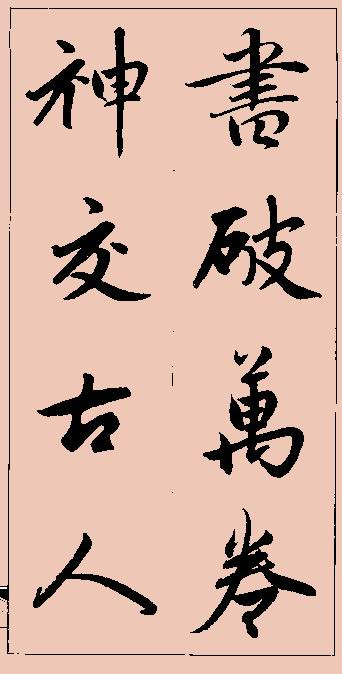 書破萬卷
神交古人